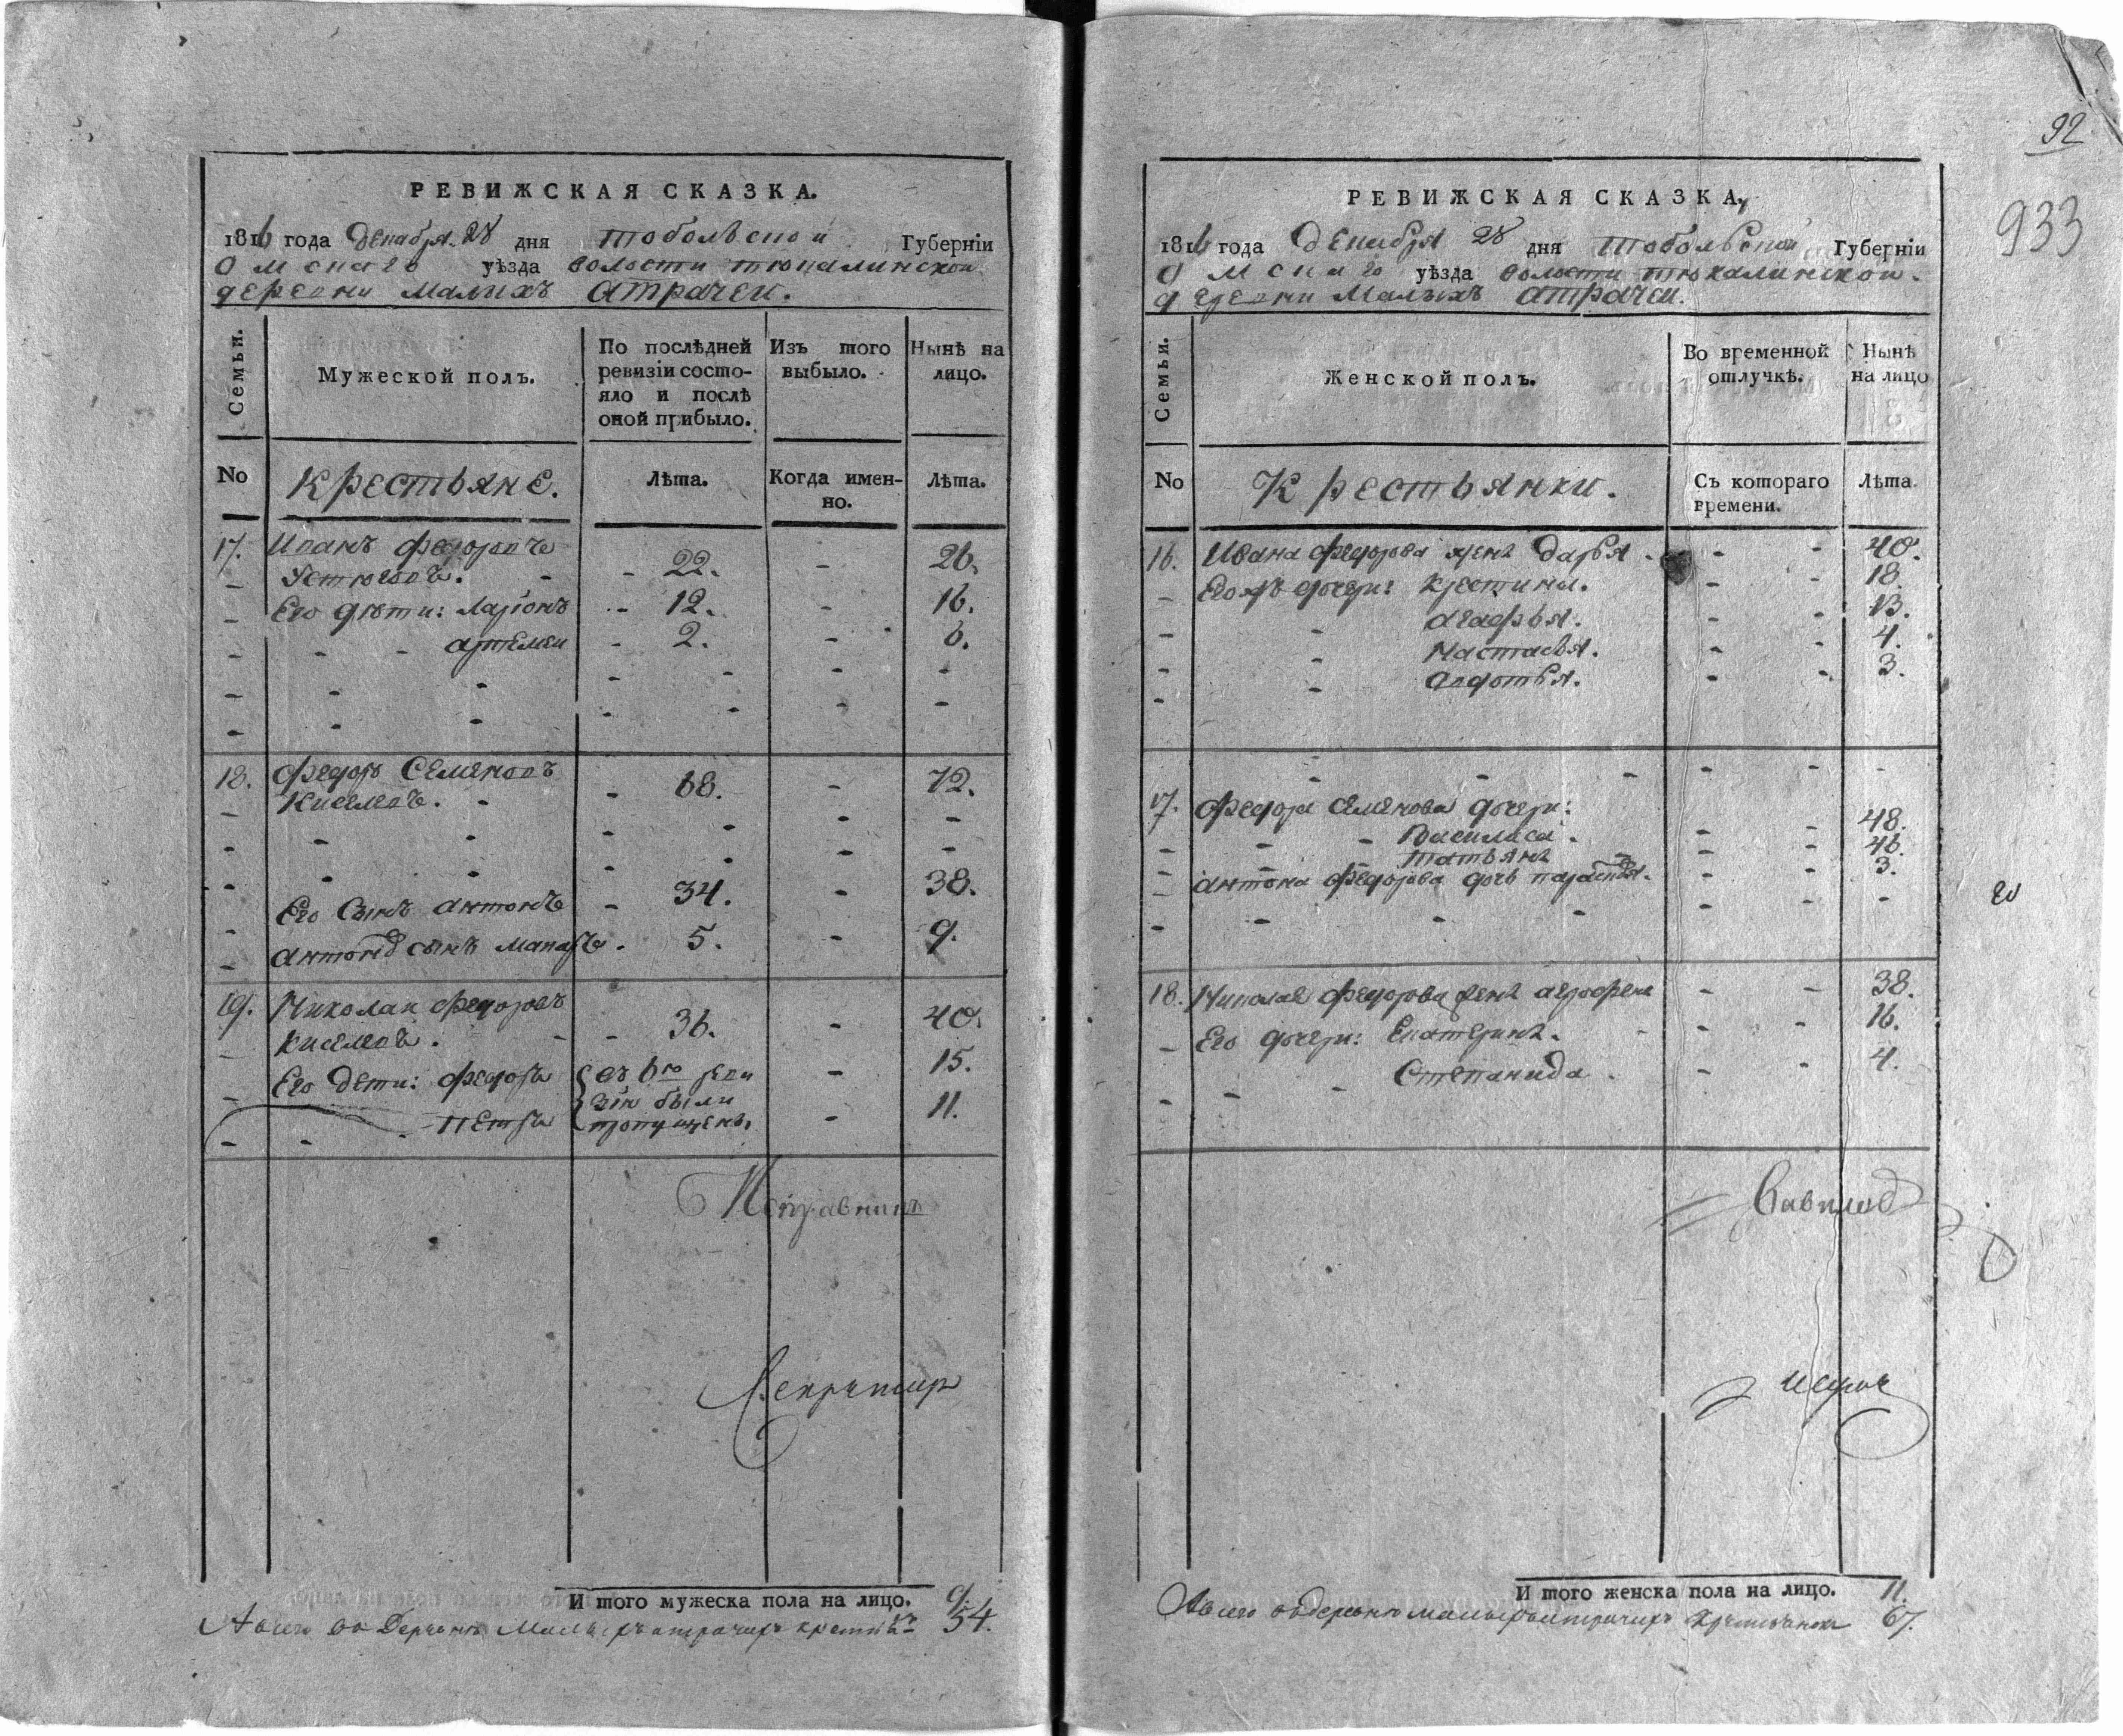 РЕВИЖСКАЯ СКАЗКА.
1816 года Декабря 28 дня Тобольской Губерніи
Омскаго уѣзда волости тюкалинской
деревни Малыхъ Атрачей.
Семьи.
Мужеской полъ.
По послѣдней
ревизіи состо-
яло и послѣ
оной прибыло.
Изъ того
выбыло.
Нынѣ на
лицо.
No
Крестьяне.
Лѣта.
Когда имен-
но.
Лѣта.
17. Иванъ Федоровъ
Устюговъ. - 22. - 26.
Его дѣти: Ларіонъ - 12. - 16.
Артемей - 2. - 6.
18. Федоръ Семеновъ
Киселевъ. - 68. - 72.
Его сынъ Антонъ - 34. - 38.
Антона сынъ Макаръ. 5. - 9.
19. Николай Федоровъ
Киселевъ. - 36. - 40.
Его дети: Федоръ въ 6ю реви - 15.
зію были
Петръ пропущены. - 11.
Исправникъ
Секретарь
И того мужеска пола на лицо. 9.
А всего въ Деревне Малыхъ атрачахъ крестьянъ 54.
92
933
РЕВИЖСКАЯ СКАЗКА,
1816 года Декабря 28 дня Тобольской Губерніи
Омскаго уѣзда волости тюкалинской.
деревни Малыхъ Атрачей.
Семьи.
Женской полъ.
Во временной
отлучкѣ.
Нынѣ
на лицо
No
Крестьянки.
Съ котораго
времени.
Лѣта.
16. Ивана Федорова жена Дарья - - 40.
Его дочери: Крестина. - - 18.
Агафья. - - 13.
Настасья. - - 4.
Авдотья. - - 3.
17. Федора Семенова дочери:
Василиса - - 48.
Татьяна - - 46.
Антона Федорова дочь парасковья. - - 3.
18. Николая Федорова жена агрофена - - 38.
Его дочери: Екатерина. - - 16.
Степанида. - - 4.
Вавилов
И того женска пола на лицо. 11.
А всего въ деревне малыхъ атрачахъ крестьянокъ 67.